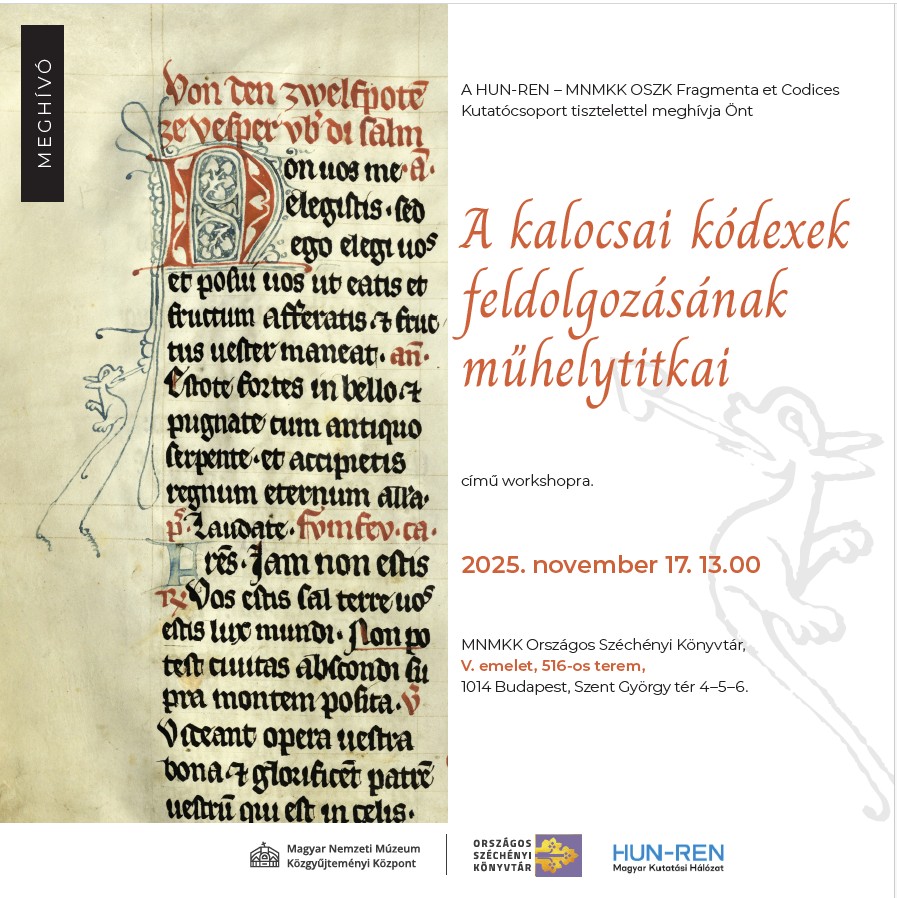 MEGHÍVÓ
Von den zwelfpotē
ze vesper vb' di salm
Non uos me· a̅·
elegistis· sed
ego elegi uos
et posui uos ut eatis et
fructum afferatis ⁊ fruc
tus uester maneat· an̅·
Estote fortes in bello ⁊
pugnate cum antiquo
serpente· et accipietis
regnum eternum all'a·
p̅s· Laudate·
res· Jam non estis
Vos estis sal terre uos
estis lux mundi· Non po
test ciuitas abscondi su
pra montem posita· v̅
Videant opera uestra
bona ⁊ glorificēt patrē
uestrū qui est in celis·
A HUN-REN – MNMKK OSZK Fragmenta et Codices
Kutatócsoport tisztelettel meghívja Önt
A kalocsai kódexek
feldolgozásának
műhelytitkai
című workshopra.
2025. november 17. 13.00
MNMKK Országos Széchényi Könyvtár,
V. emelet, 516-os terem,
1014 Budapest, Szent György tér 4–5–6.
Magyar Nemzeti Múzeum
Közgyűjteményi Központ
ORSZÁGOS
SZÉCHÉNYI
KÖNYVTÁR
HUN-REN
Magyar Kutatási Hálózat